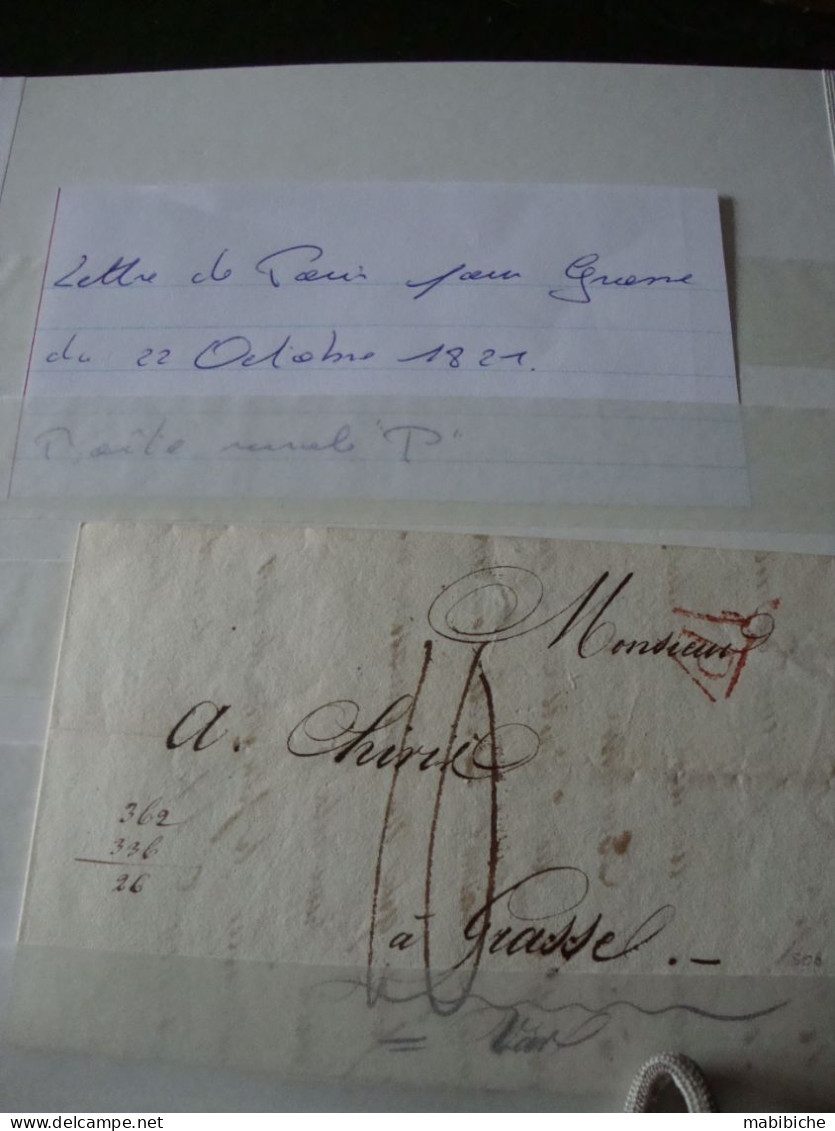 Lettre de Paris pour Grasse
du 22 Octobre 1821.
Boîte rurale "P"
Monsieur
A. Chiris
à Grasse. -
362
336
26
10
Var
delcampe.net
mabibiche